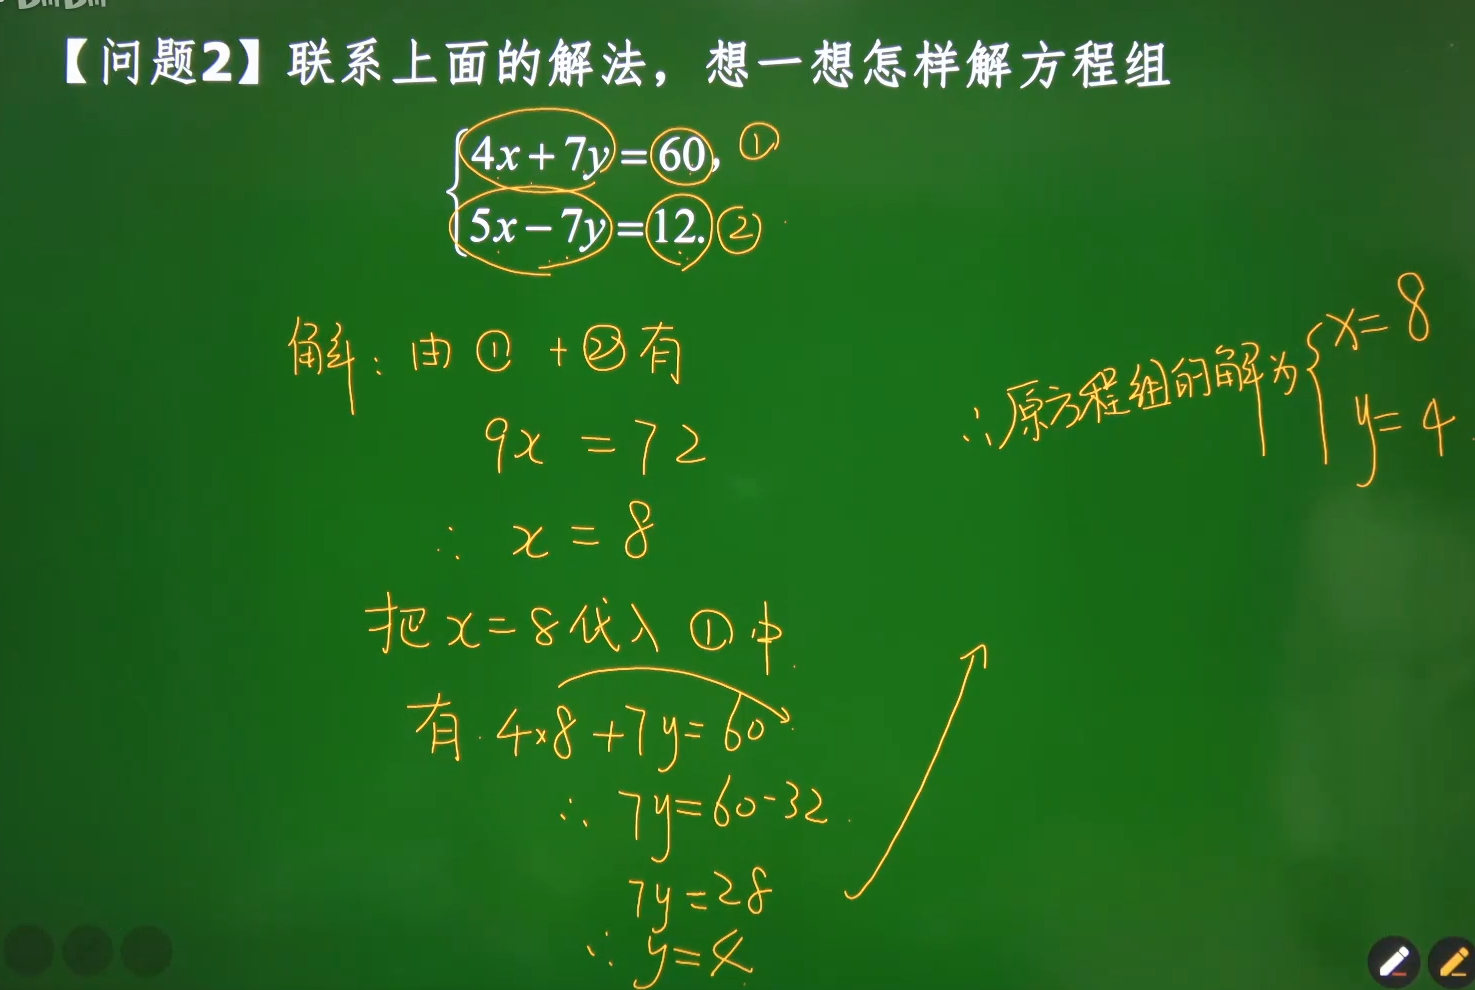 【问题2】联系上面的解法，想一想怎样解方程组
4x+7y=60, ①
5x−7y=12. ②
解：由 ① + ② 有
9x = 72
∴ x = 8
把 x=8 代入 ① 中
有 4×8+7y=60
∴ 7y=60-32
7y=28
∴ y=4
∴原方程组的解为 { x=8
y=4